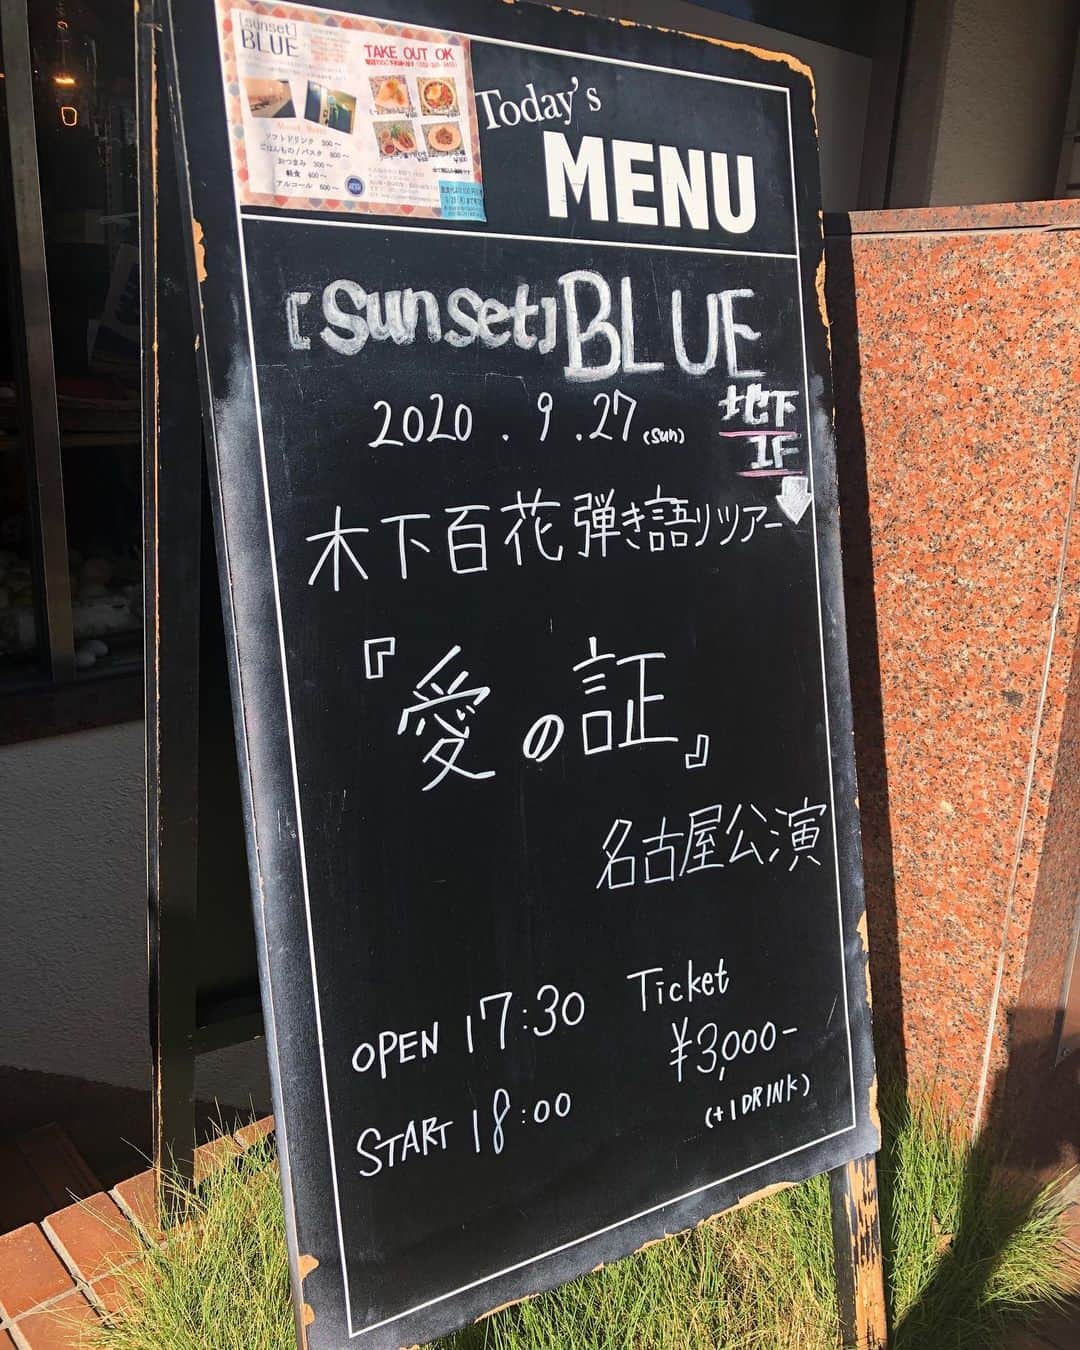 [sunset]
BLUE
TAKE OUT OK
ソフトドリンク 300～
ごはんもの/パスタ 800～
おつまみ 300～
軽食 400～
アルコール 600～
Today's
MENU
[sunset] BLUE
2020.9.27(sun)
地下
1F
木下百花弾き語りツアー
『愛の証』
名古屋公演
OPEN 17:30
START 18:00
Ticket
¥3,000-
(+1DRINK)